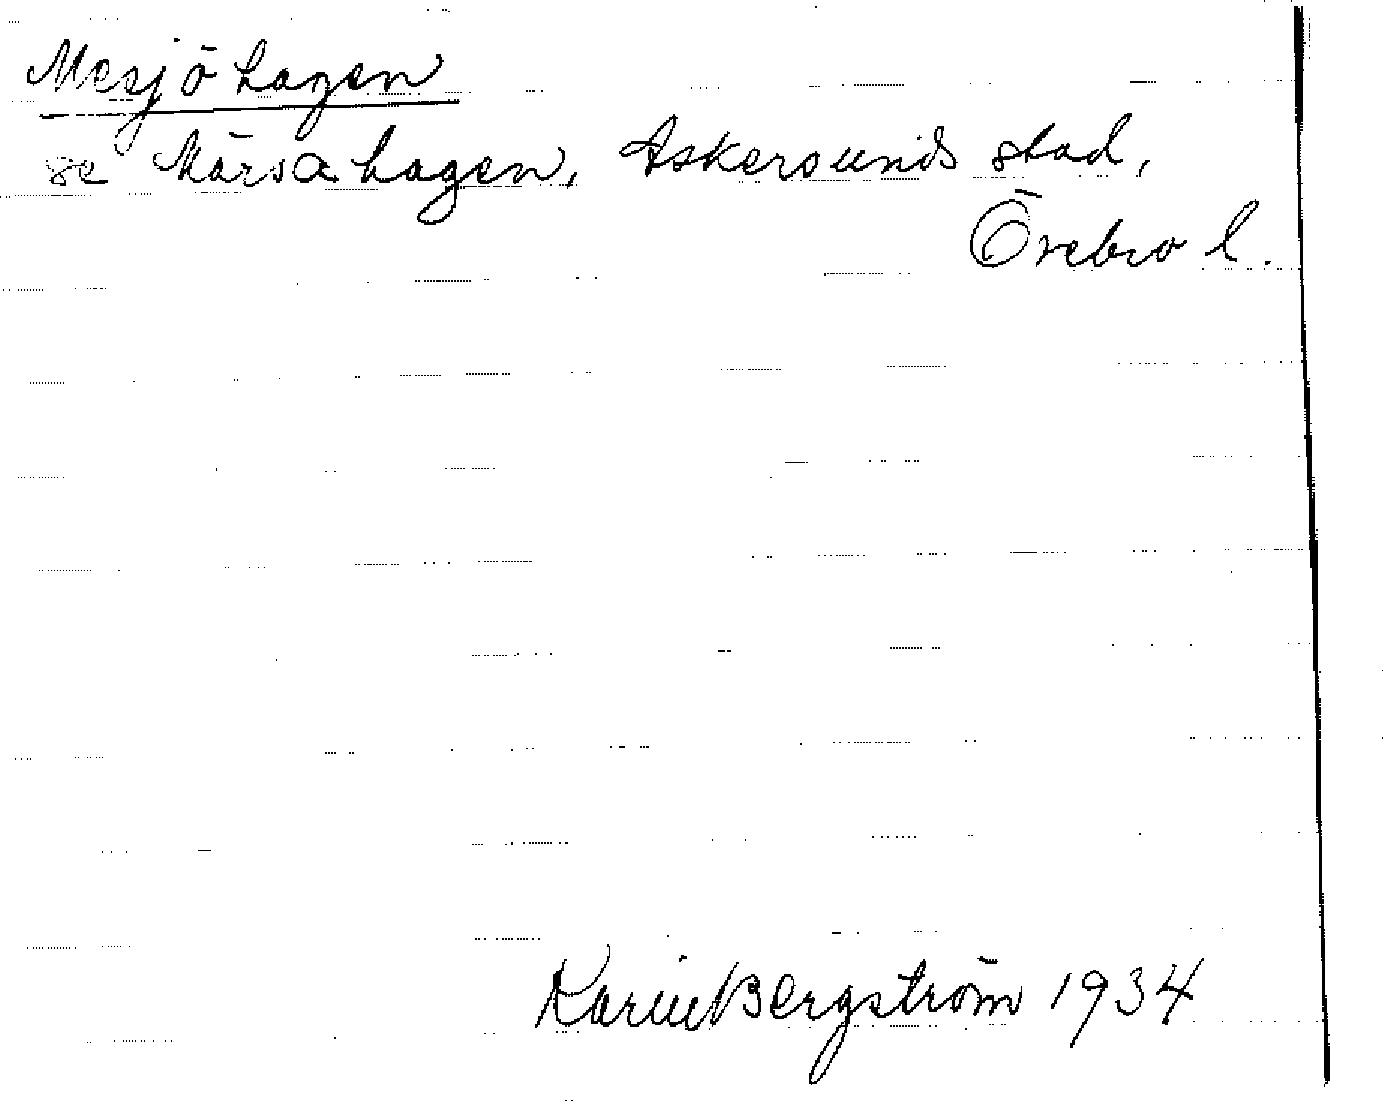 Mesjöhagen
se Märsahagen, Askersunds stad,
Örebro l.
Karin Bergström 1934